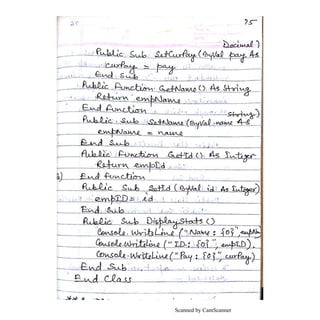 75
Decimal)
Public Sub SetCurPay (ByVal pay As
curPay = pay
End Sub
Public Function GetName() As String
Return empName
End Function
String)
Public Sub SetName (ByVal name As
empName = name
End Sub
Public Function GetId() As Integer
Return empID
End Function
Public Sub SetId (ByVal id As Integer)
empID = id
End Sub
Public Sub DisplayStats()
Console.WriteLine ("Name : {0}", empNa
Console.WriteLine ("ID : {0}", empID).
Console.WriteLine ("Pay : {0}", curPay)
End Sub
End Class
Scanned by CamScanner